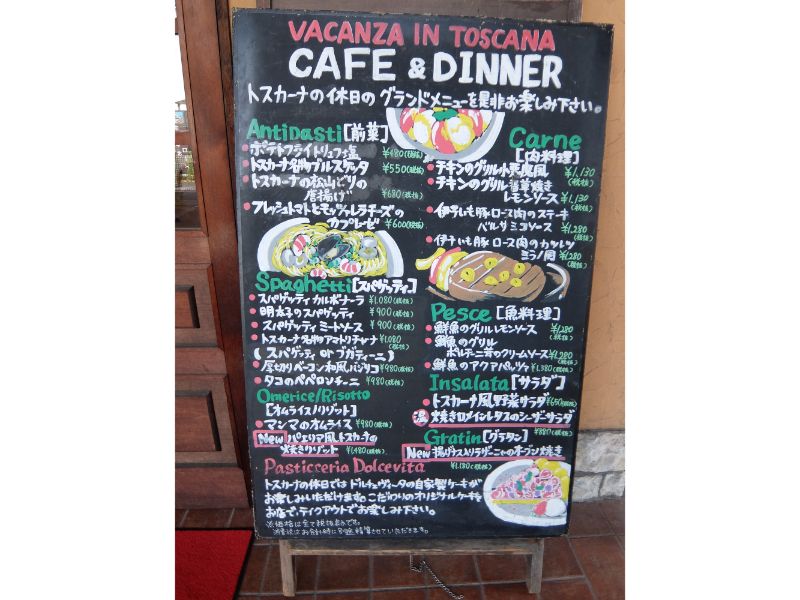 VACANZA IN TOSCANA
CAFE & DINNER
トスカーナの休日の グランドメニューを是非お楽しみ下さい。
Antipasti [前菜]
ポテトフライトリュフ塩 ¥480(税抜)
トスカーナ名物ブルスケッタ ¥550(税抜)
トスカーナの松山どりの
唐揚げ ¥680(税抜)
フレッシュトマトとモッツァレラチーズの
カプレーゼ ¥600(税抜)
Spaghetti [スパゲッティ]
スパゲッティ カルボナーラ ¥1,080(税抜)
明太子のスパゲッティ ¥900(税抜)
スパゲッティ ミートソース ¥900(税抜)
トスカーナ名物アマトリチャーナ ¥1,080
(税抜)
(スパゲッティ or ブガティーニ)
厚切りベーコン和風バジリコ ¥980(税抜)
タコのペペロンチーニ ¥980(税抜)
Omerice/Risotto
[オムライス/リゾット]
マンマのオムライス ¥980(税抜)
New パエリア風トスカーナの
焼きリゾット ¥1,480(税抜)
Carne
[肉料理]
チキンのグリル小悪魔風 ¥1,130
(税抜)
チキンのグリル 香草焼き
レモンソース ¥1,130
(税抜)
伊予いも豚ロース肉のステーキ
バルサミコソース ¥1,280
(税抜)
伊予いも豚 ロース肉のカツレツ
ミラノ風 ¥1,280
(税抜)
Pesce [魚料理]
鮮魚のグリルレモンソース ¥1,280
(税抜)
鮮魚のグリル
ポルチーニ茸のクリームソース ¥1,280
(税抜)
鮮魚のアクアパッツァ ¥1,380(税抜)
Insalata [サラダ]
トスカーナ風野菜サラダ ¥650(税抜)
温 焼きロメインレタスのシーザーサラダ
¥880(税抜)
Gratin [グラタン]
New 揚げナス入りラザーニャのオーブン焼き
¥1,180(税抜)
Pasticceria Dolcevita
トスカーナの休日では ドルチェヴィータの自家製ケーキが
お楽しみいただけます。こだわりのオリジナルケーキを
お店で、テイクアウトでお楽しみ下さい。
※価格は全て税抜きです。
消費税はお会計時に別途精算させていただきます。